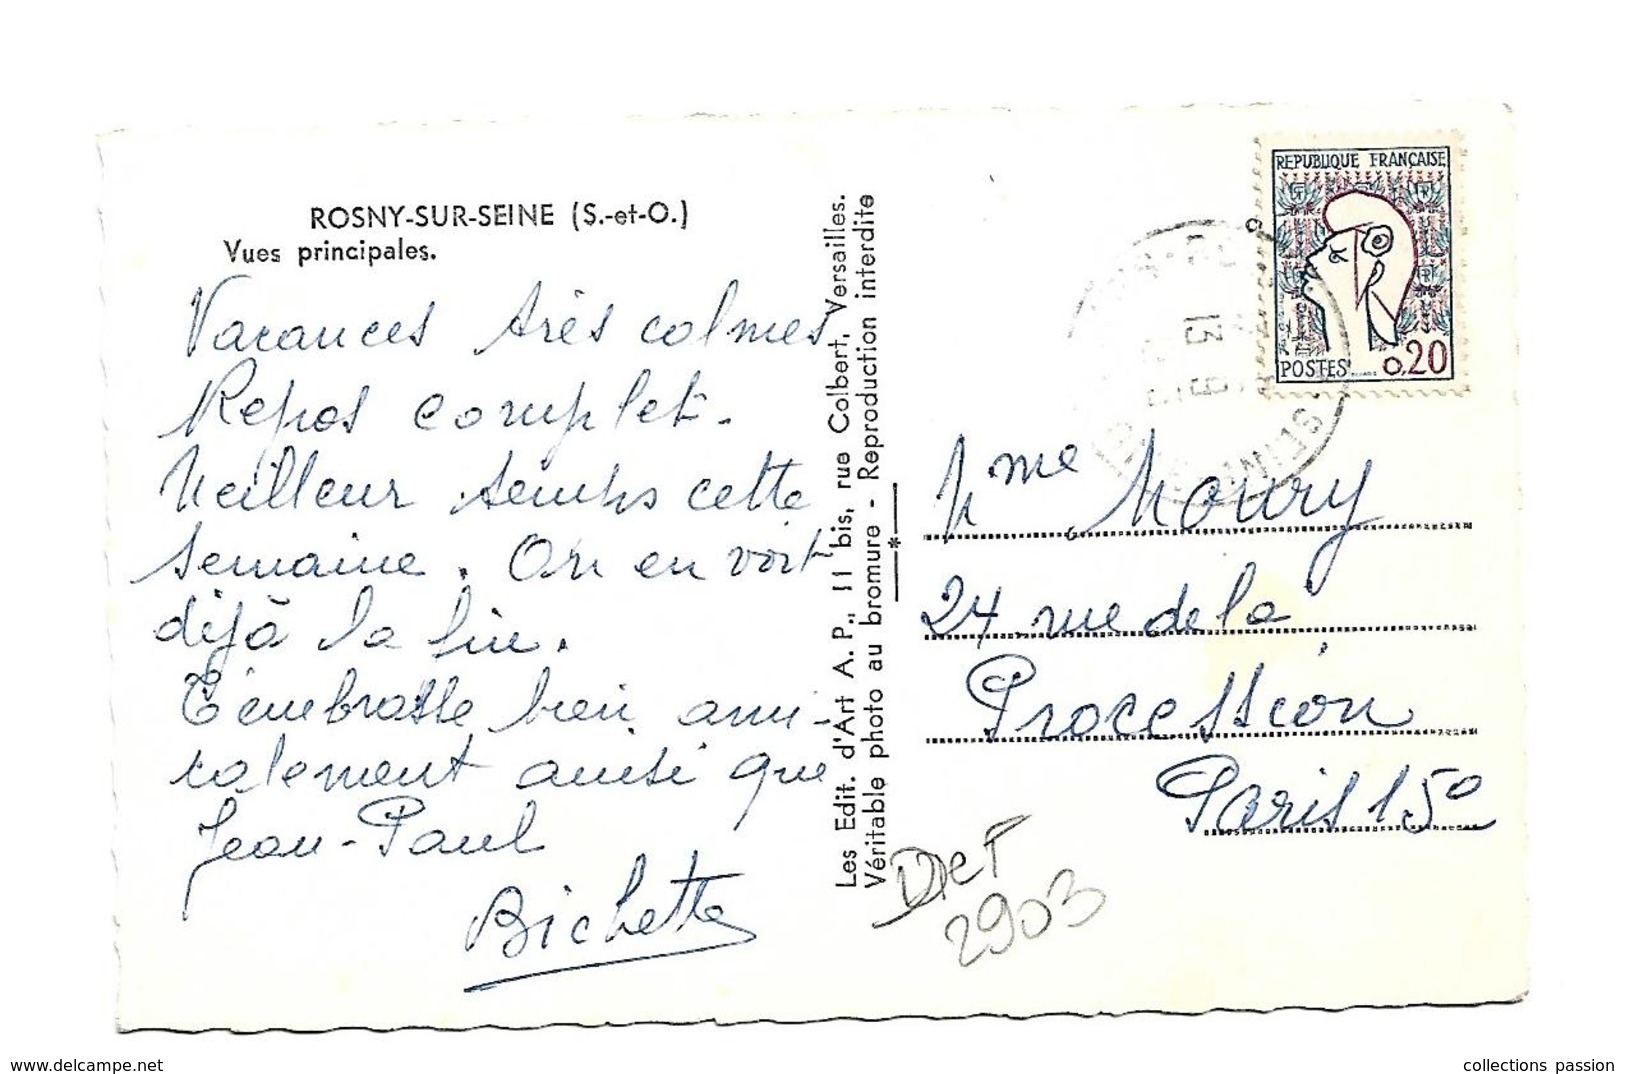 ROSNY-SUR-SEINE (S.-et-O.)
Vues principales.
Vacances très calmes
Repos complet.
Meilleur temps cette
semaine. On en voit
déjà la fin.
T'embrasse bien ami-
calement ainsi que
Jean-Paul
Bichette
Les Edit. d'Art A. P., 11 bis, rue Colbert, Versailles.
Véritable photo au bromure - Reproduction interdite
REPUBLIQUE FRANÇAISE
POSTES 0,20
13
Mme Moury
24 rue de la
Procession
Paris 15°
2903
www.delcampe.net
collections passion